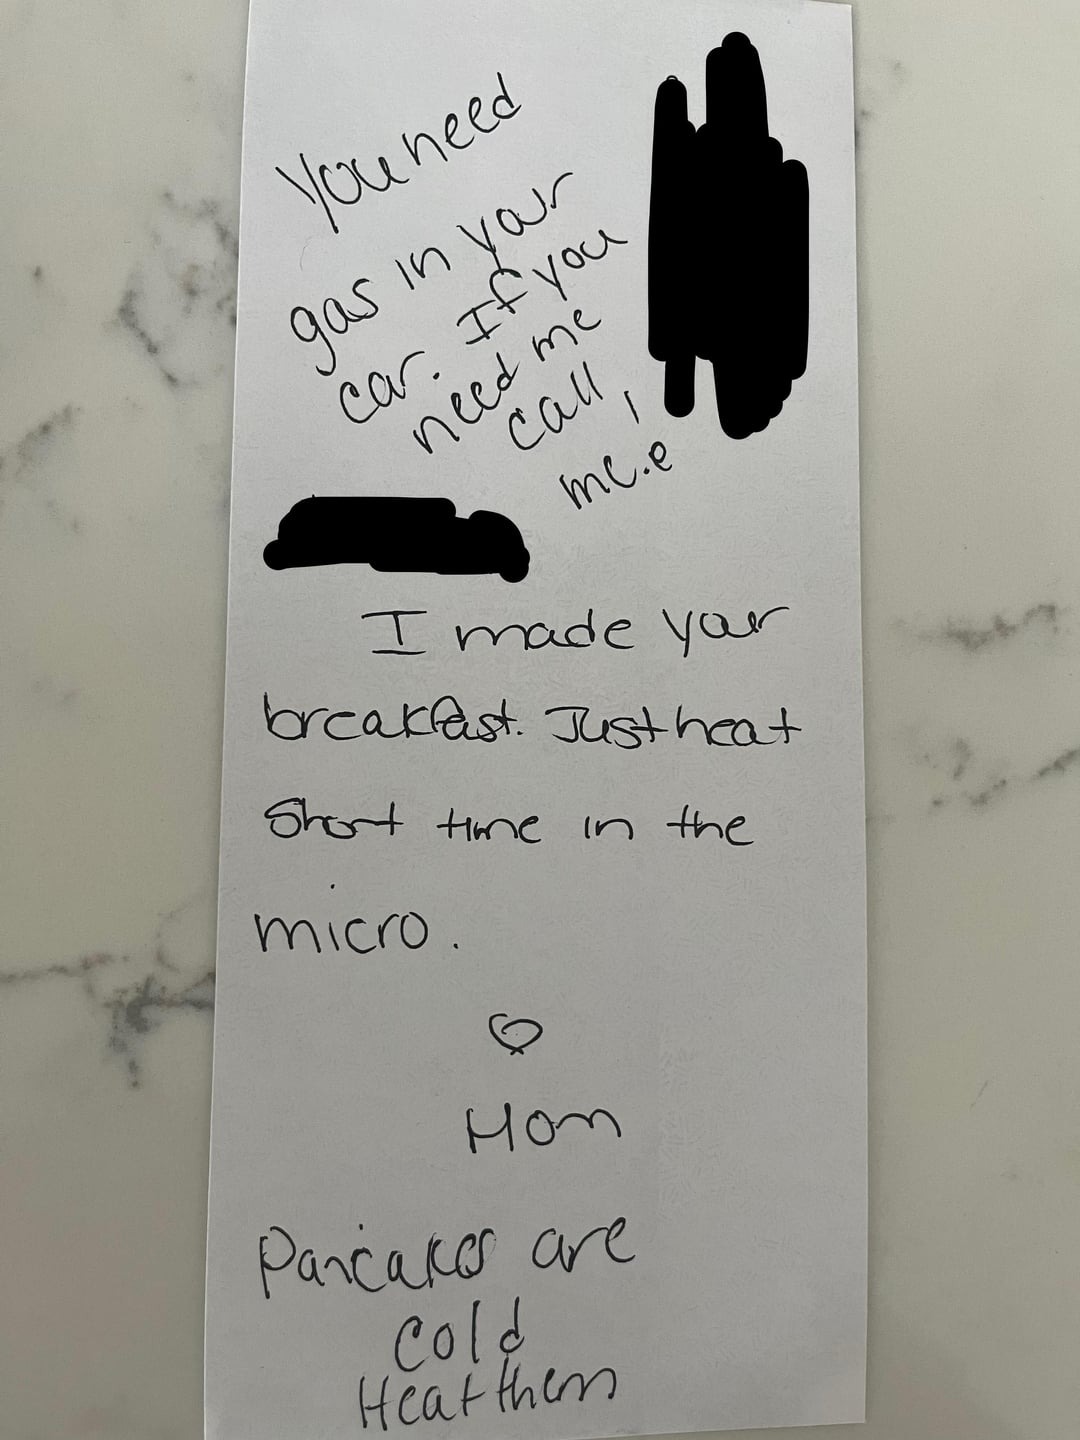 You need
gas in your
car. If you
need me
call
me.
I made your
breakfast. Just heat
Short time in the
micro.
♡
Mom
Pancakes are
Cold
Heat them